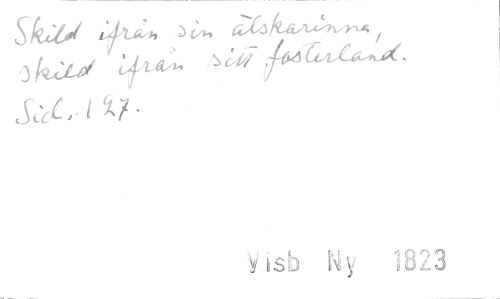 Skild ifrån sin älskarinna,
skild ifrån sitt fosterland.
Sid. 127.
Visb Ny 1823